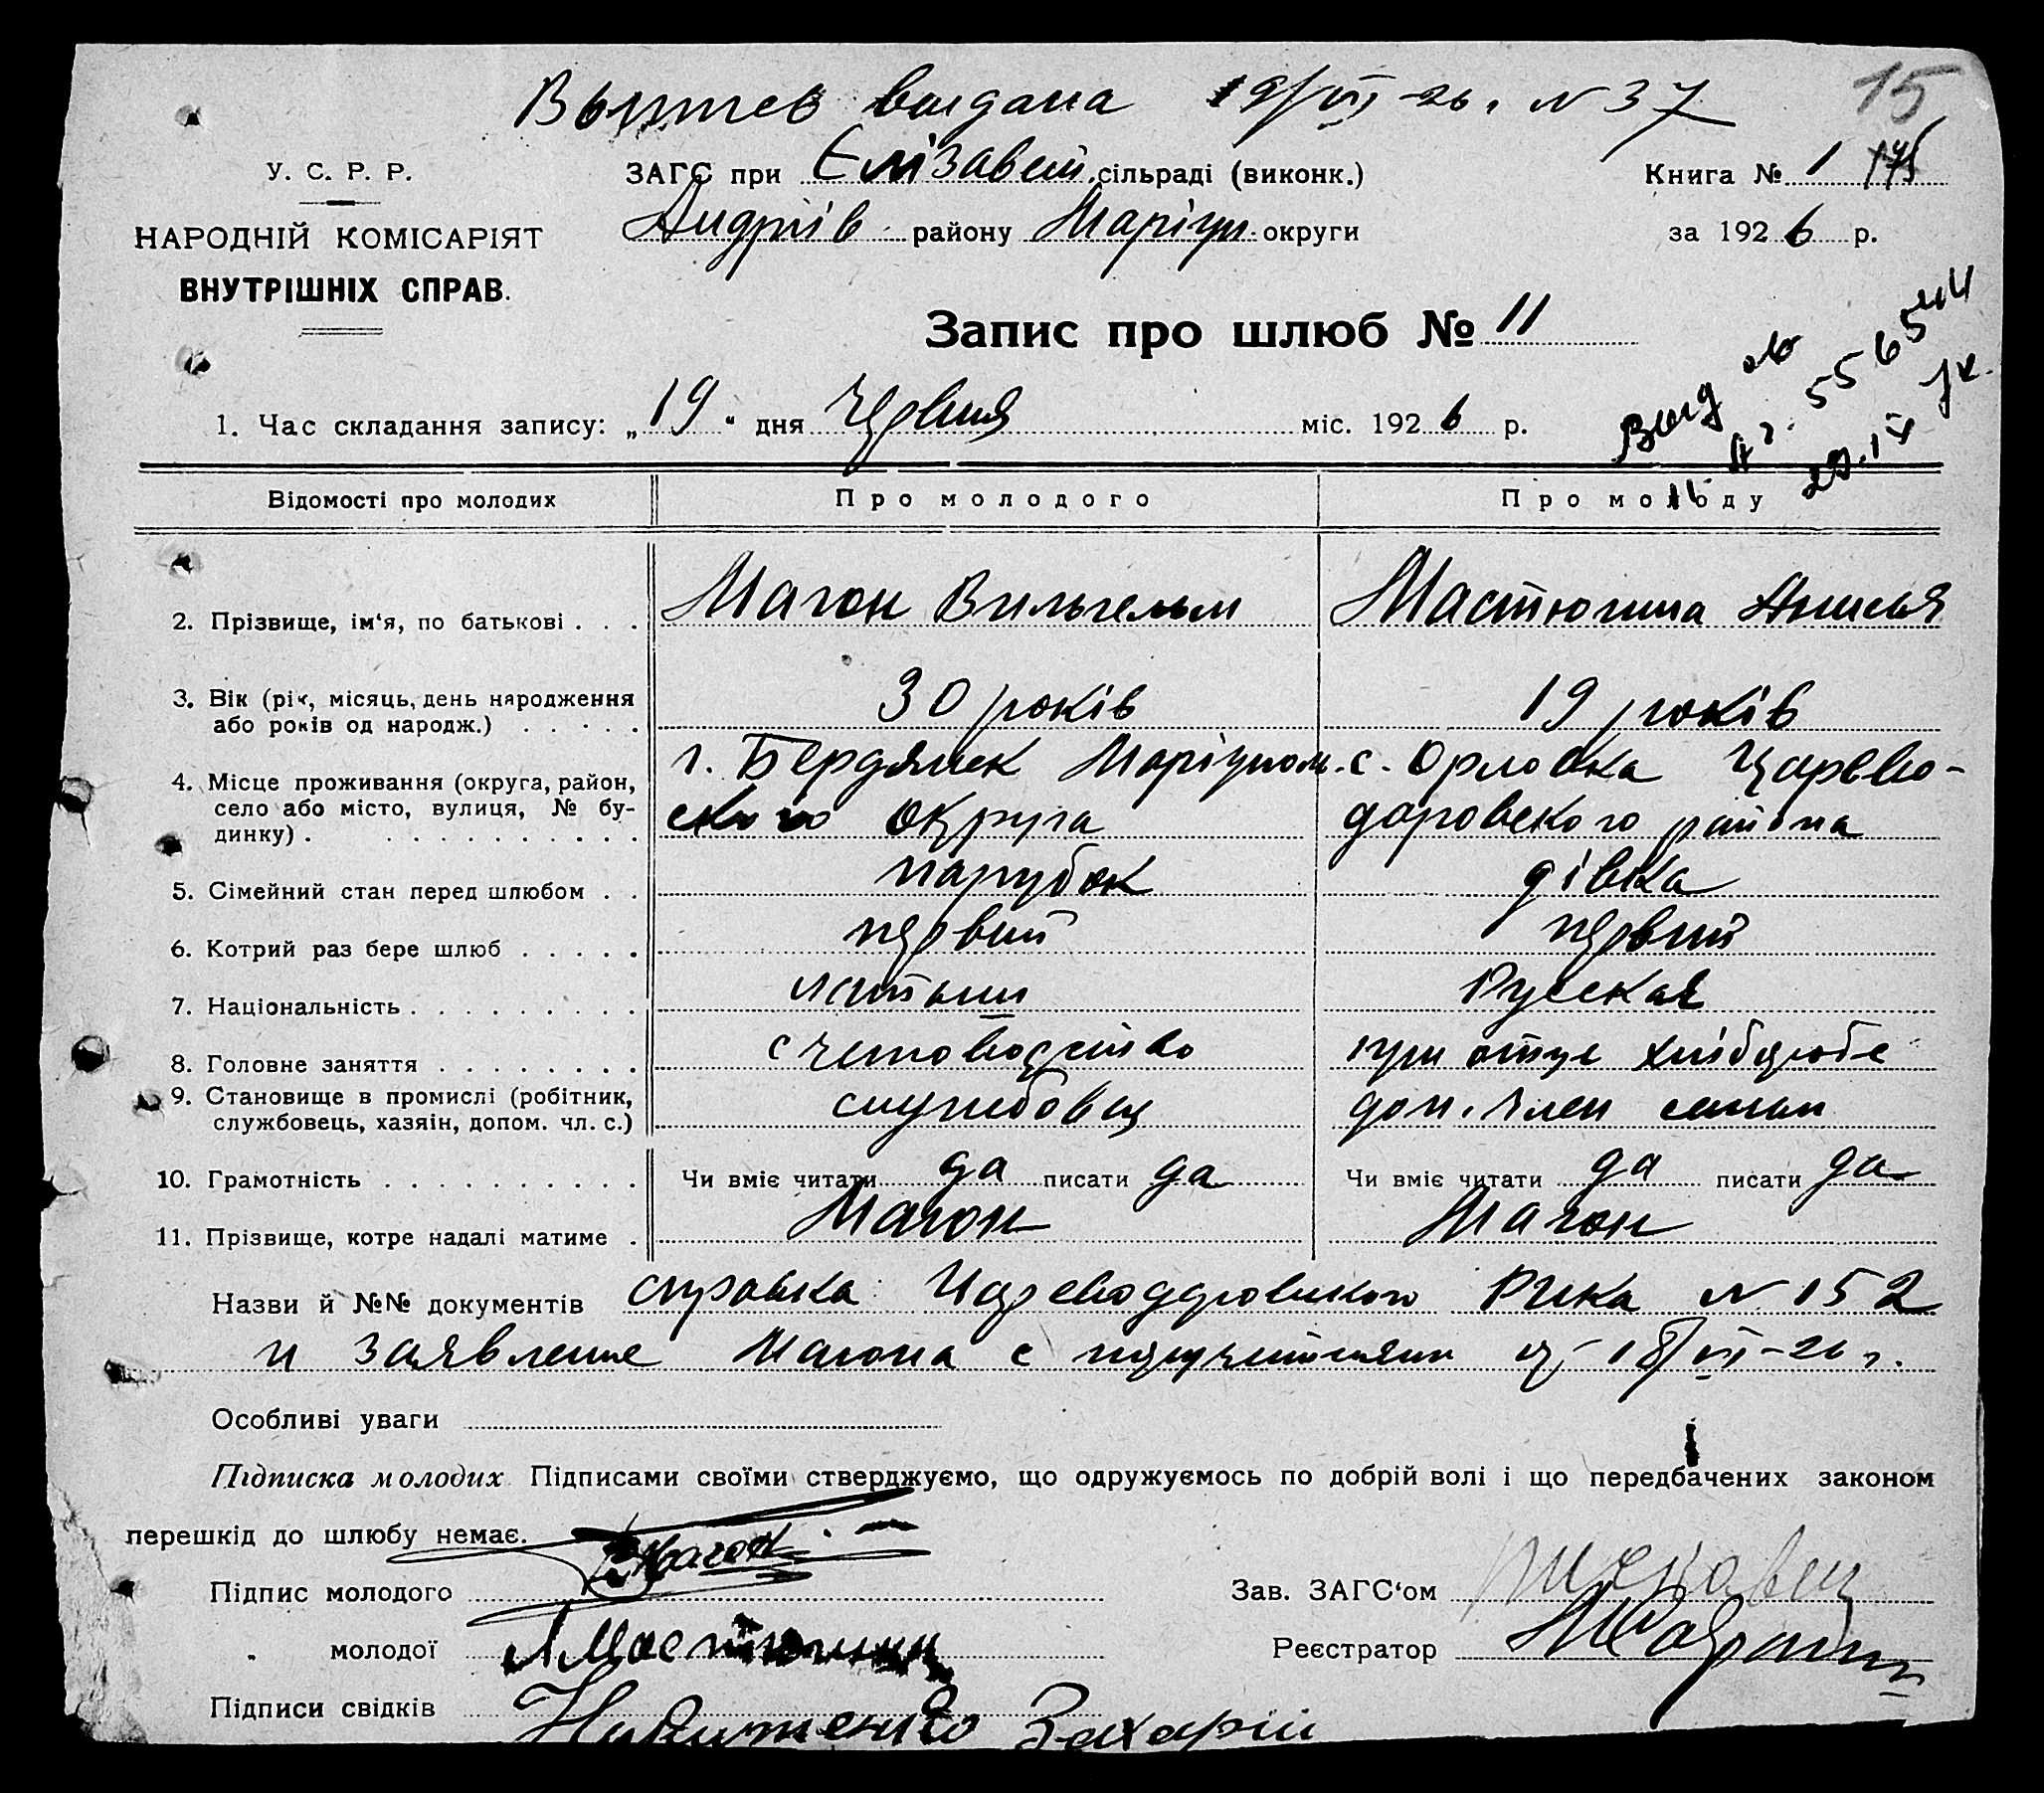 выдана 19/VI-26 г. N 37
15
У. С. Р. Р.
ЗАГС при Єлізавет. сільраді (виконк.)
Книга № 1
НАРОДНІЙ КОМІСАРІЯТ
Андріїв району Маріуп. округи
за 1926 р.
ВНУТРІШНІХ СПРАВ.
Запис про шлюб № 11
1. Час складання запису: „19“ дня Червня міс. 1926 р.
Відомості про молодих
Про молодого
Про молоду
2. Прізвище, ім'я, по батькові . . .
Магон Вильгельм
Мастюгина Анисья
3. Вік (рік, місяць, день народження
або років од народж.) . . . . .
30 років
19 років
4. Місце проживання (округа, район,
село або місто, вулиця, № бу-
динку) . . . . . . . . . .
г. Бердянск Маріупол.
ского округа
с. Орловка Царево-
даровского района
5. Сімейний стан перед шлюбом . .
парубок
дівка
6. Котрий раз бере шлюб . . . . .
первий
первий
7. Національність . . . . . . . . .
латыш
Русская
8. Головне заняття . . . . . . . .
счетоводство
при отце хлібороб
9. Становище в промислі (робітник,
службовець, хазяін, допом. чл. с.)
службовец
доп. член семьи
10. Грамотність . . . . . . . . . .
Чи вміє читати да писати да
Чи вміє читати да писати да
11. Прізвище, котре надалі матиме .
Магон
Магон
Назви й №№ документів справка Рика N 152
и заявление Магона с 18/VI-26 г.
Особливі уваги
Підписка молодих Підписами своїми стверджуємо, що одружуємось по добрій волі і що передбачених законом
перешкід до шлюбу немає.
Підпис молодого Магон
Зав. ЗАГС'ом
„ молодої А Мастюгина
Реєстратор
Підписи свідків Никитенко Захарій